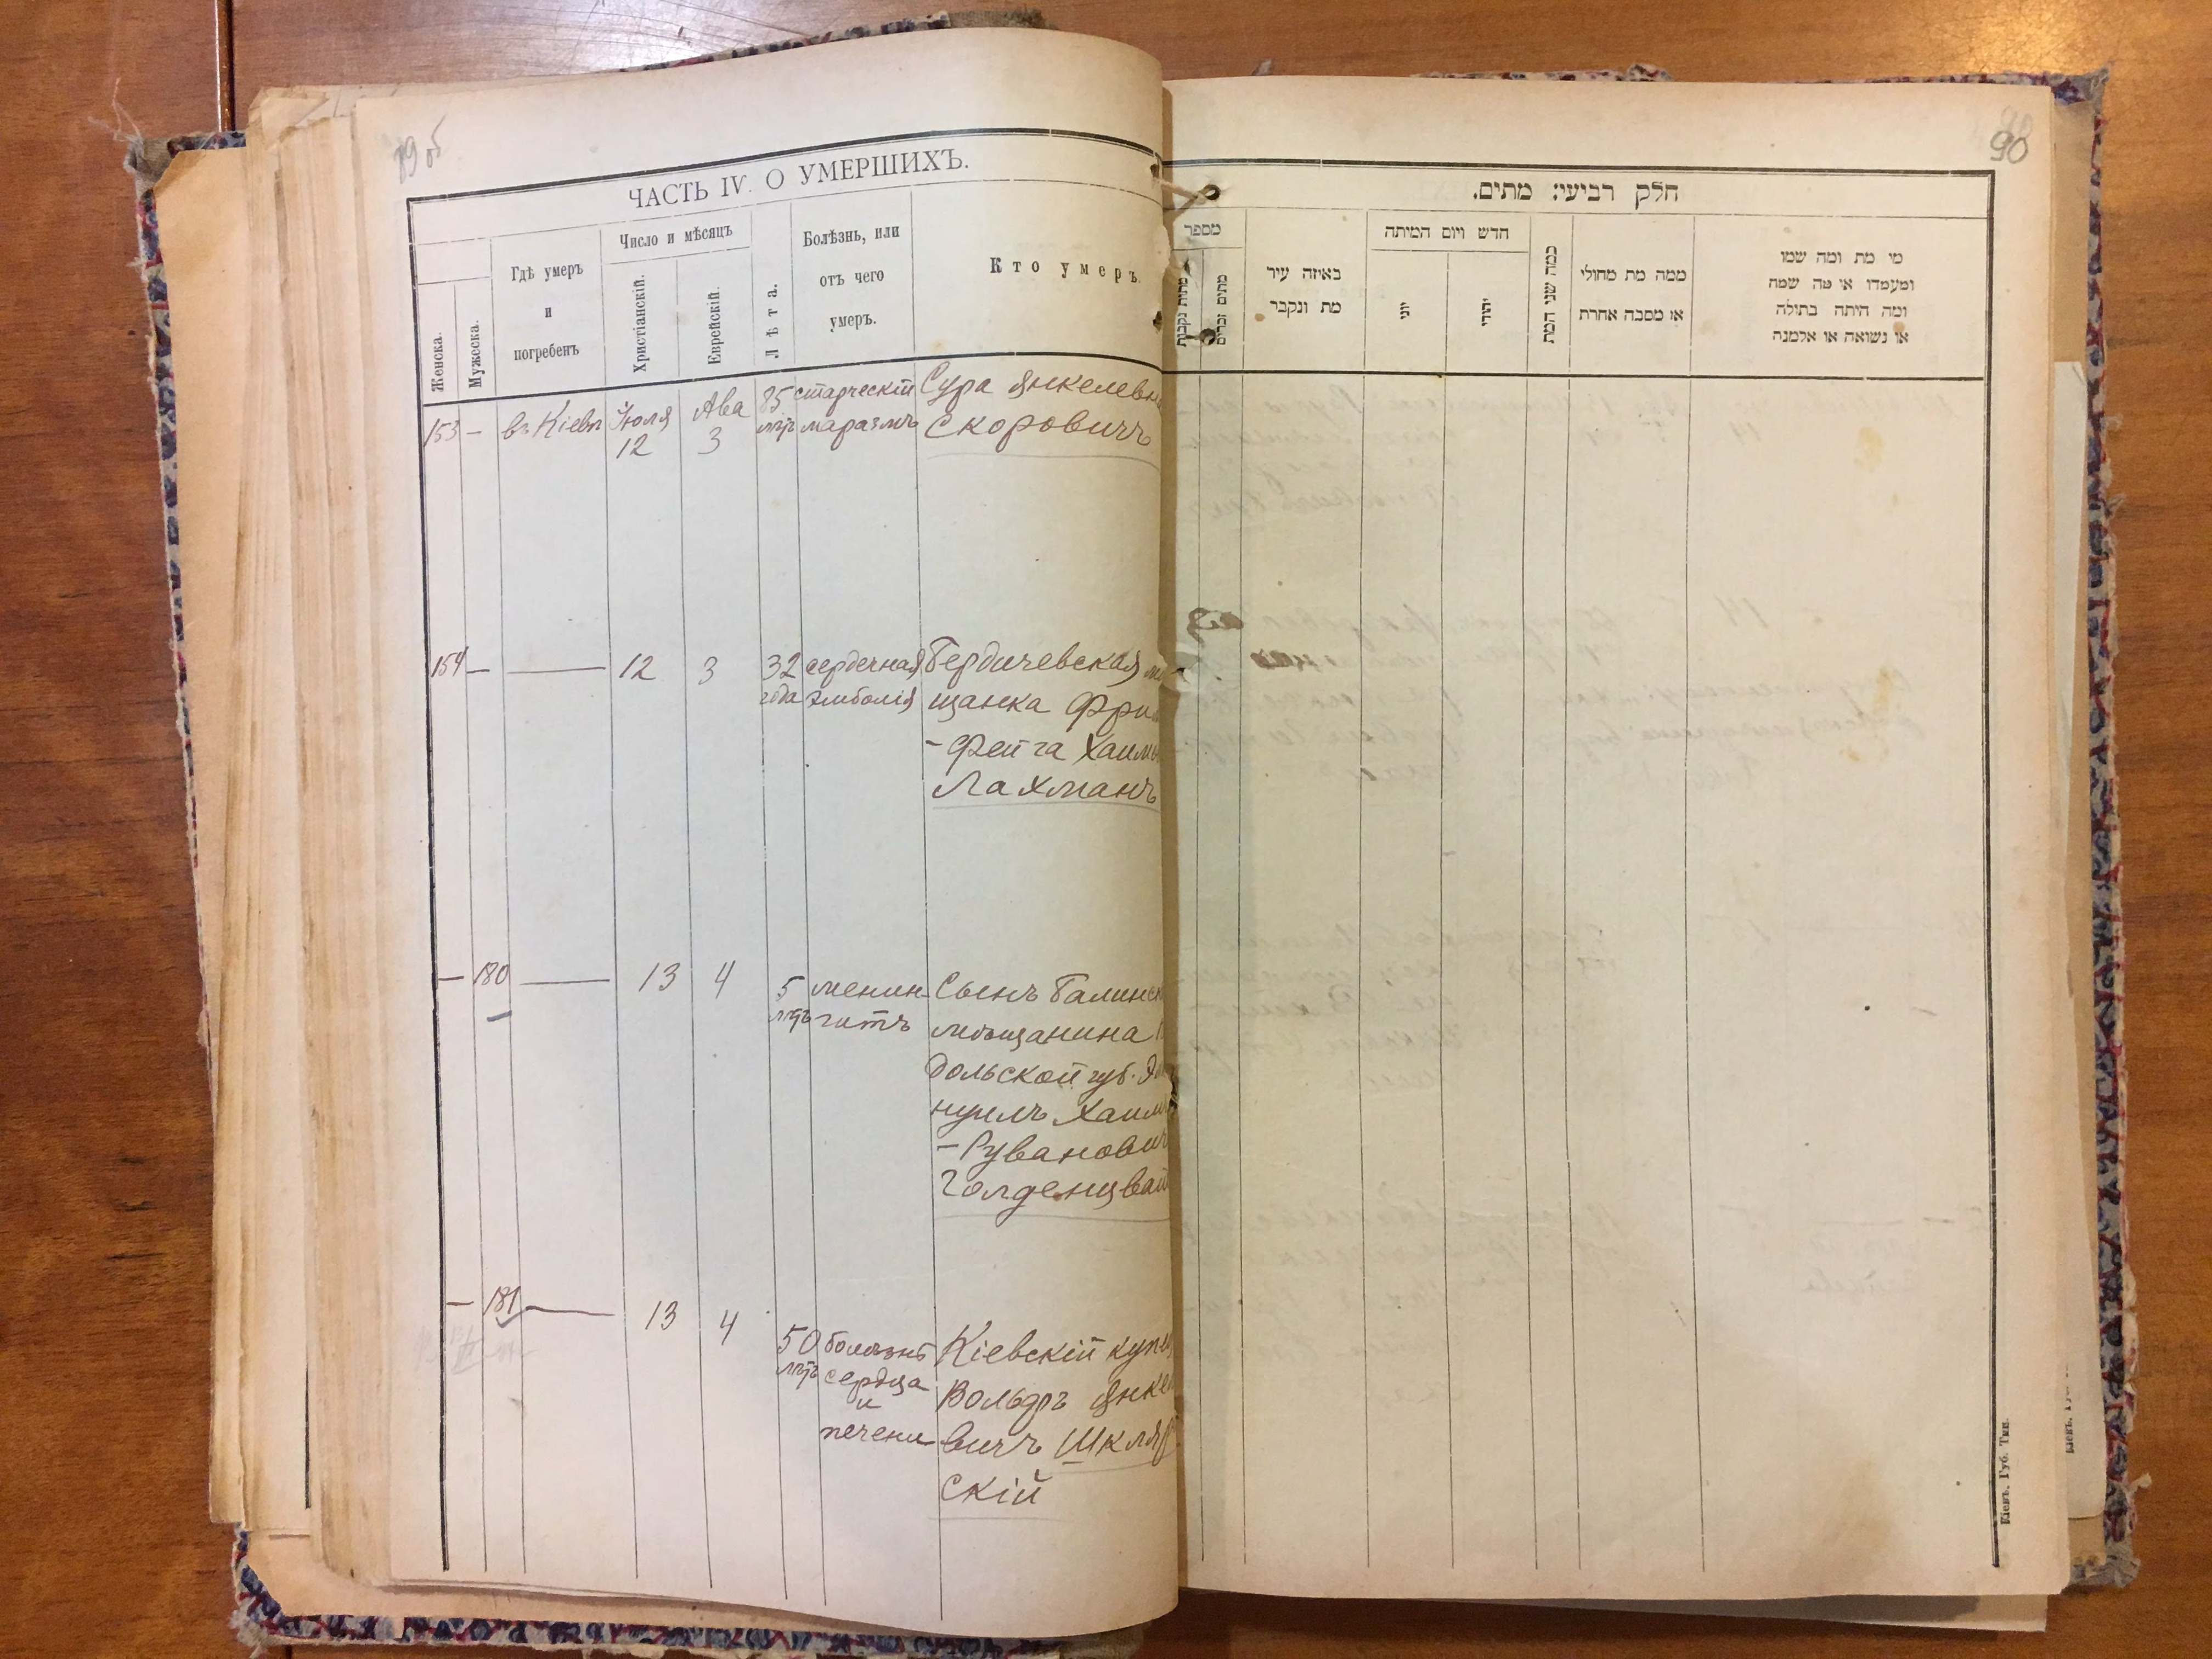 89 об
ЧАСТЬ IV. О УМЕРШИХЪ.
Женска.
Мужеска.
Гдѣ умеръ
и
погребенъ
Число и мѣсяцъ
Христіанскій.
Еврейскій.
Лѣта.
Болѣзнь, или
отъ чего
умеръ.
Кто умеръ.
153 — въ Кіевѣ Іюля 12 Ава 3 85 лѣтъ старческій маразмъ
Сура Янкелевн
Скоровичъ
154 — — 12 3 32 года сердечная эмболія
Бердичевская мѣ
щанка Фри
- Фейга Хаим
Лахманъ
— 180 — 13 4 5 лѣтъ менин-
гитъ
Сынъ Балинск
мѣщанина
дольской губ. Э
нуилъ Хаим
- Руванович
Голденцвай
— 181 — 13 4 50 лѣтъ болѣзнь
сердца
и
печени
Кіевскій купец
Вольфъ Янке
вичъ Шкляр
скій
90
חלק רביעי: מתים.
מספר
מתות נקבות
מתים זכרים
באיזה עיר
מת ונקבר
חדש ויום המיתה
יוני
יהודי
כמה שני המת
ממה מת מחולי
או מסבה אחרת
מי מת ומה שמו
ומעמדו או מה שמה
ומה היתה בתולה
או נשואה או אלמנה
Кіевъ. Губ. Тип.